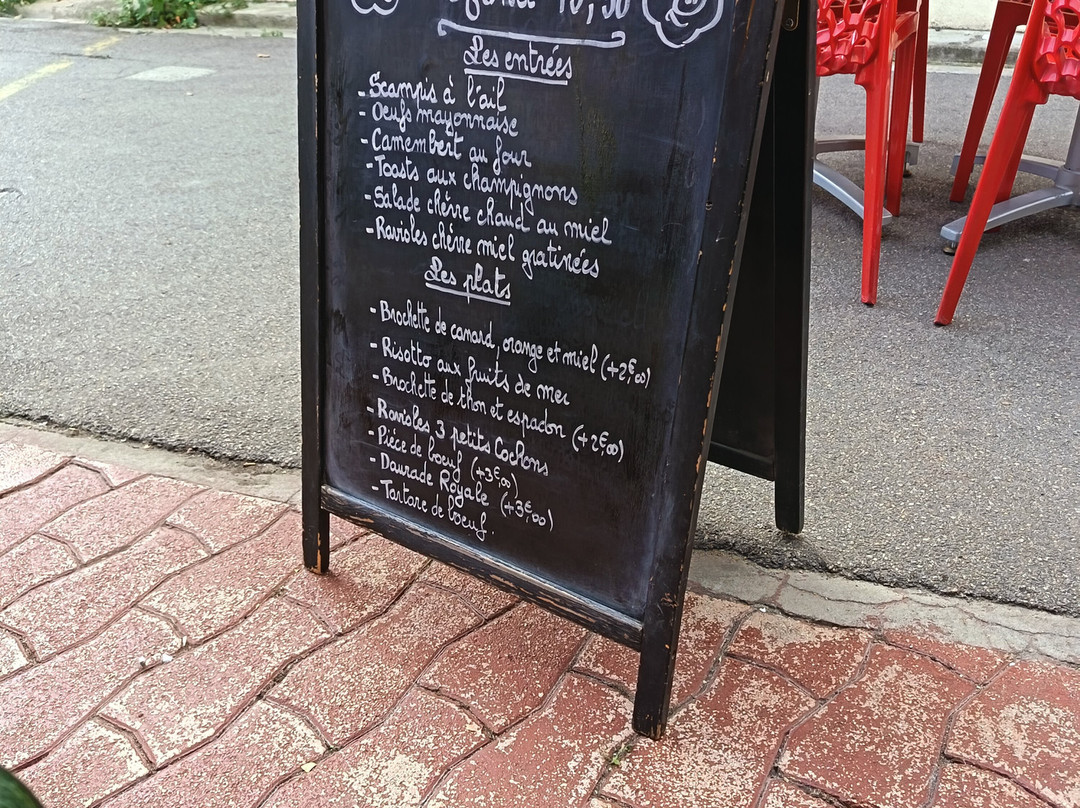 Les entrées
- Scampis à l'ail
- Oeufs mayonnaise
- Camembert au four
- Toasts aux champignons
- Salade chèvre chaud au miel
- Ravioles chèvre miel gratinées
Les plats
- Brochette de canard, orange et miel (+2€,00)
- Risotto aux fruits de mer
- Brochette de thon et espadon (+2€,00)
- Ravioles 3 petits Cochons
- Pièce de boeuf (+3€,00)
- Daurade Royale (+3€,00)
- Tartare de boeuf.